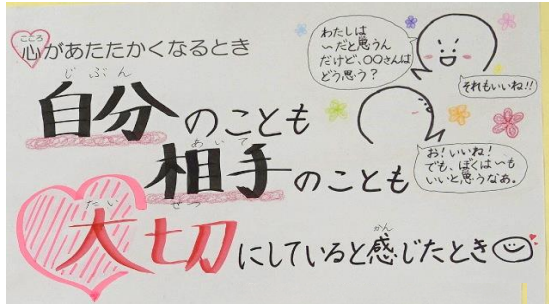 こころ
心があたたかくなるとき
じぶん
自分のことも
あいて
相手のことも
たいせつ
大切にしていると感じたとき
かん
わたしは
〜だと思うん
だけど、〇〇さんは
どう思う？
それもいいね!!
お！いいね！
でも、ぼくは〜も
いいと思うなあ。